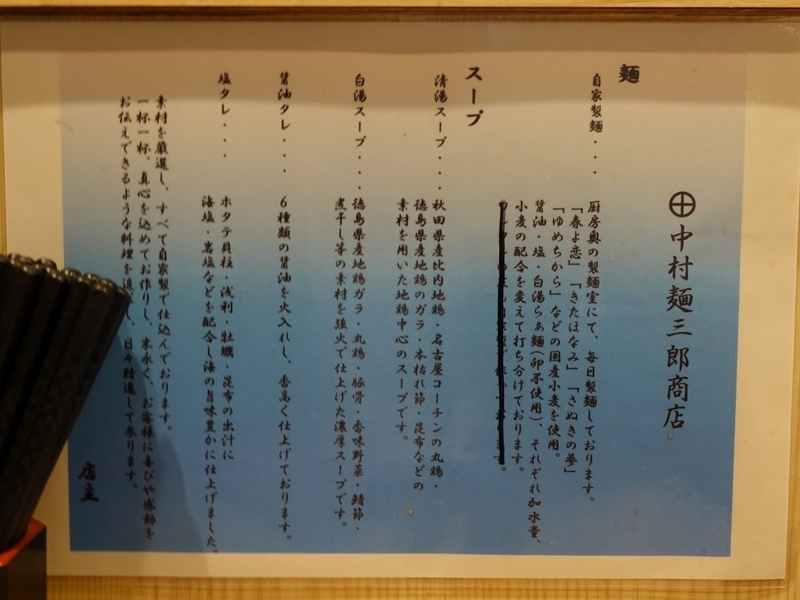 ⊕中村麺三郎商店
麺
自家製麺・・・
厨房奥の製麺室にて、毎日製麺しております。
「春よ恋」「きたほなみ」「さぬきの夢」
「ゆめちから」などの国産小麦を使用。
醤油・塩・白湯らぁ麺(卵不使用)、それぞれ加水量、
小麦の配合を変えて打ち分けております。
スープ
清湯スープ・・・
秋田県産比内地鶏・名古屋コーチンの丸鶏・
徳島県産地鶏のガラ・本枯れ節・昆布などの
素材を用いた地鶏中心のスープです。
白湯スープ・・・
徳島県産地鶏ガラ・丸鶏・豚骨・香味野菜・鯖節・
煮干し等の素材を強火で仕上げた濃厚スープです。
醤油タレ・・・
6種類の醤油を火入れし、香高く仕上げております。
塩タレ・・・・
ホタテ貝柱・浅利・牡蠣・昆布の出汁に
海塩・岩塩などを配合し海の旨味豊かに仕上げました。
素材を厳選し、すべて自家製で仕込んでおります。
一杯一杯、真心を込めてお作りし、末永く、お客様に喜びや感動を
お伝えできるような料理を追 し、日々精進して参ります。
店主